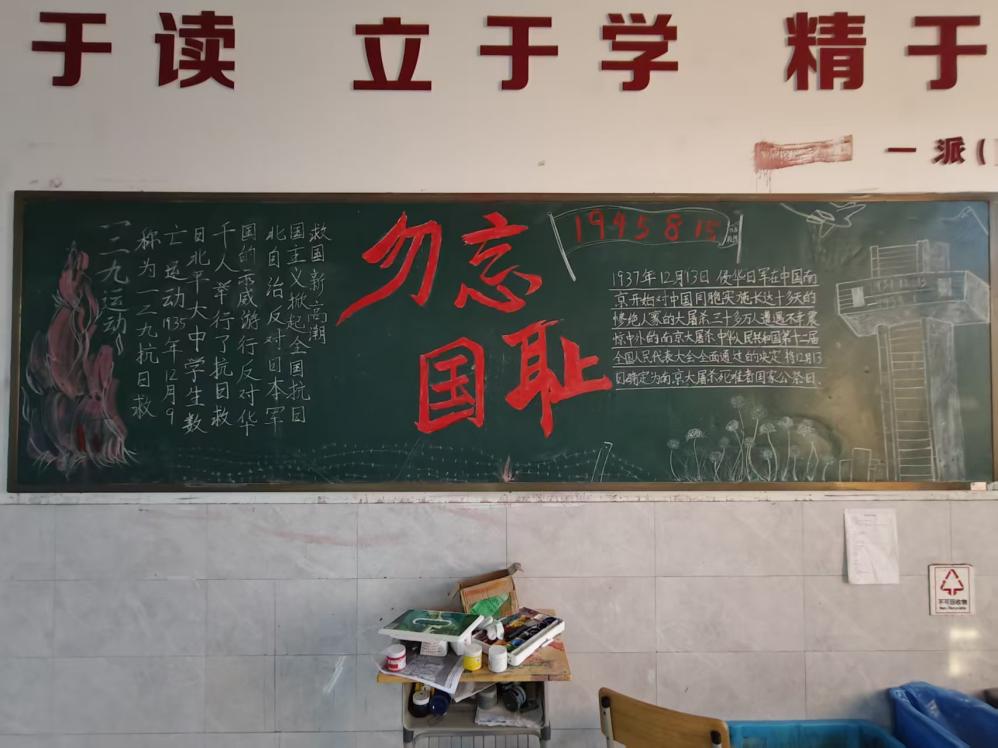 于读 立于学 精于
一派(
一二九运动》
称为一二九抗日救
亡运动1935年12月9
日北平大中学生数
千人举行了抗日救
国的示威游行反对华
北自治反对日本军
国主义掀起全国抗日
救国新高潮
勿忘
国耻
1945 8 15
1937年12月13日 侵华日军在中国南
京开始对中国同胞实施长达十多天的
惨绝人寰的大屠杀三十多万人遭遇不幸震
惊中外的南京大屠杀.中华人民共和国第十二届
全国人民代表大会全面通过的决定 将12月13
日确定为南京大屠杀死难者国家公祭日.
不可回收物